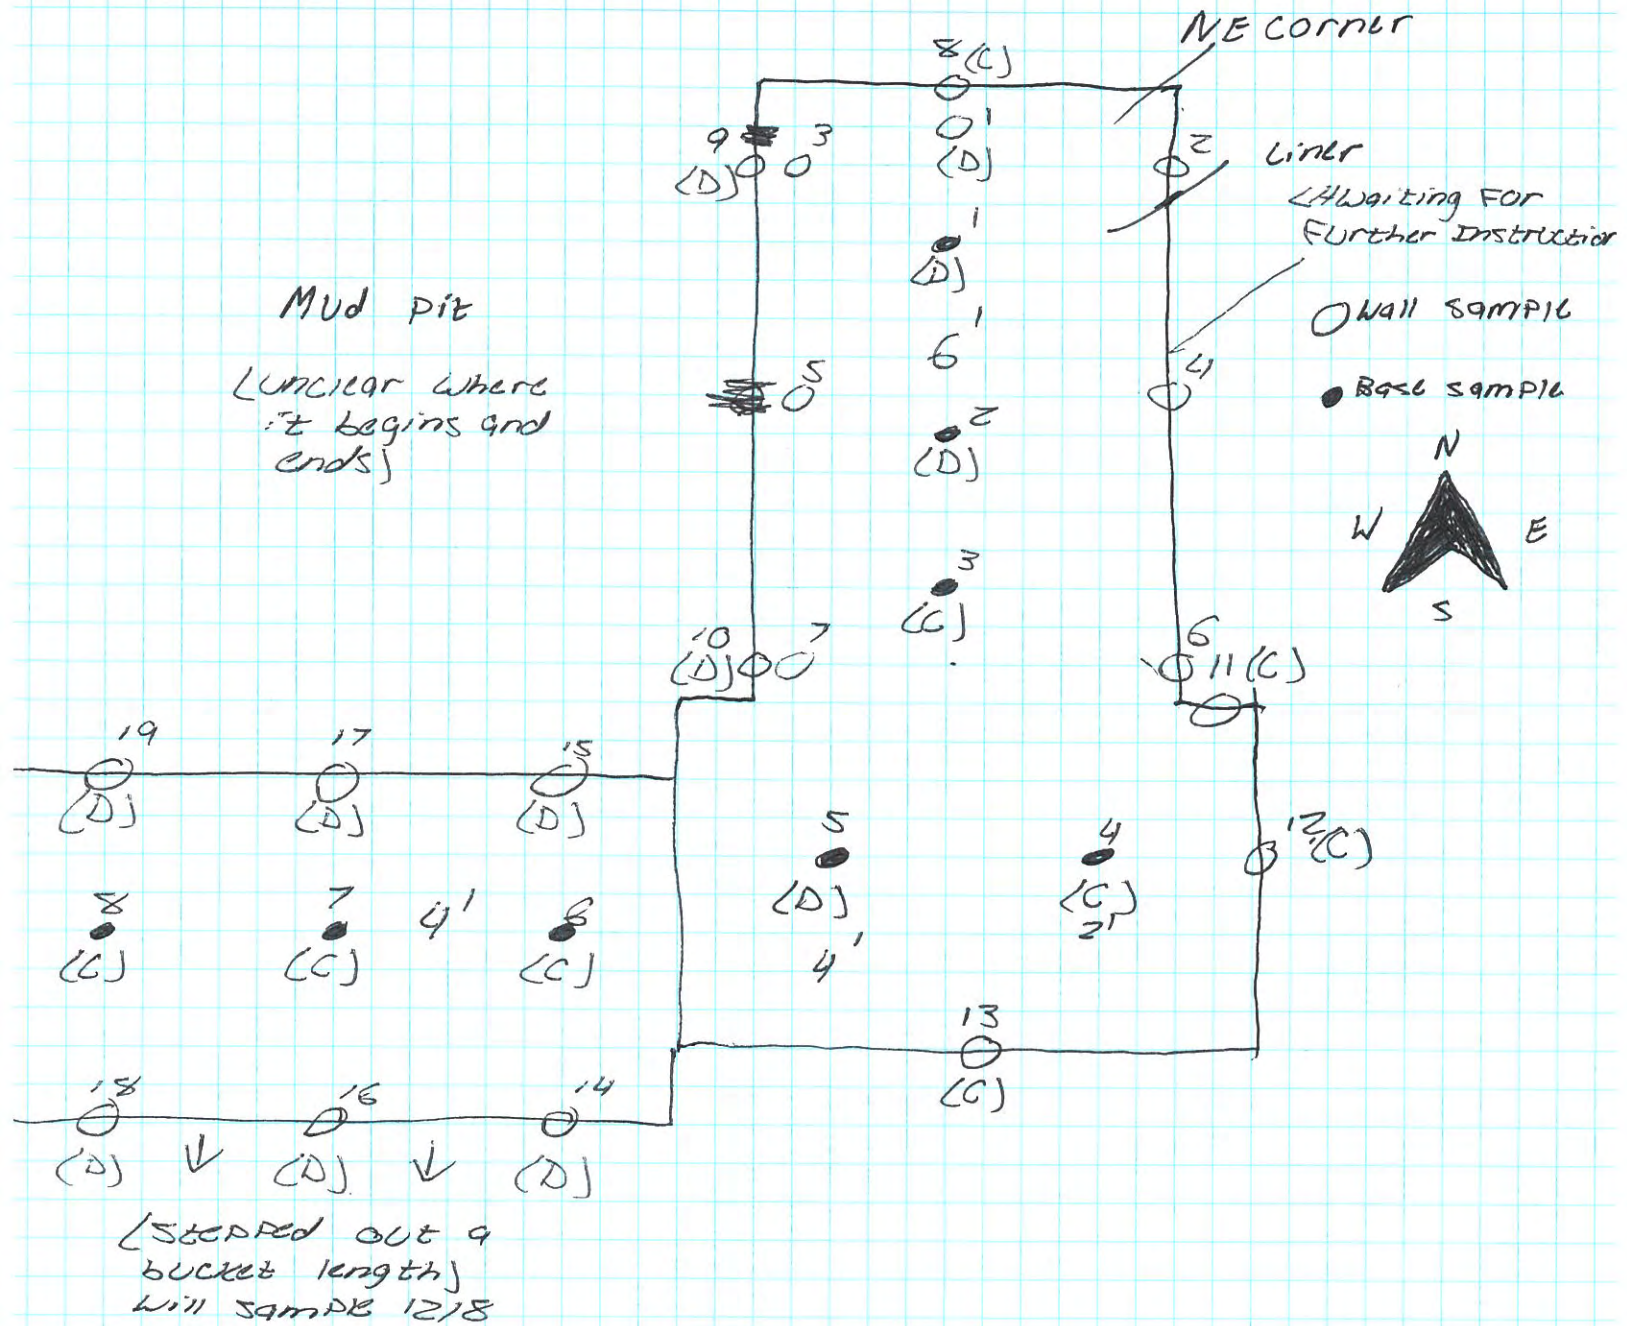 NE Corner
8 (C)
0'
(D)
9
(D)
3
2
Liner
(Awaiting For
Further Instruction
1
(D)
Mud pit
(unclear where
it begins and
ends)
6'
5
4
Wall sample
Base sample
2
(D)
N
W
E
S
3
(C)
10
(D)
7
6
11 (C)
19
(D)
17
(D)
15
(D)
5
(D)
4'
4
(C)
2'
12 (C)
8
(C)
7
(C)
4'
6
(C)
13
(C)
18
(D)
16
(D)
14
(D)
(Stepped out a
bucket length)
Will sample 12/8